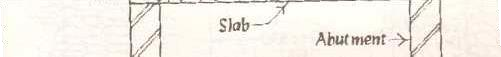 Slab
Abutment